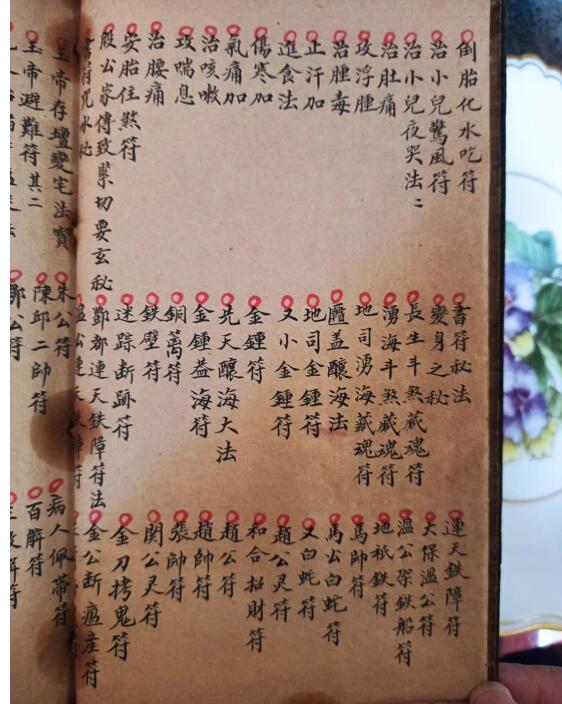 倒胎化水吃符
治小兒驚風符
治小兒夜哭法二
治肚痛
攻浮腫
治腫毒
止汗加
進食法
傷寒加
氣痛加
治咳嗽
攻喘息
治腰痛
安胎住煞符
殷公家傳致緊切要玄秘
書符咒水秘
書符秘法
變身之秘
長生斗煞藏魂符
湧海斗煞藏魂符
地司湧海藏魂符
蓋釀海法
地司金鍾符
又小金鍾符
金鍾符
先天釀海大法
金鍾蓋海符
銅符
鉄壁符
迷踪断跡符
酆都連天鉄障符法
温公連天鉄障符
連天鉄障符
大保温公符
温公架鉄船符
地祇鉄符
馬帥符
馬公白蛇符
又白蛇符
趙公灵符
和合招財符
趙公符
趙帥符
張帥符
関公灵符
金刀拷鬼符
金公断瘟産符
玉帝存壇變宅法寶
玉帝避難符其二
朱公符
陳邱二帥符
鄧公符
病人佩帶符
百解符